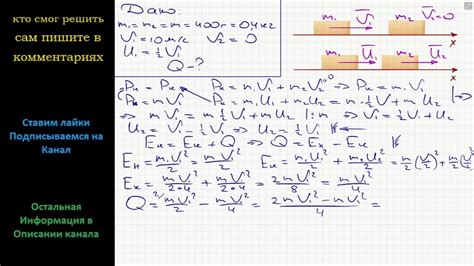 кто смог решить
сам пишите в
комментариях
Ставим лайки
Подписываемся на
Канал
Остальная
Информация в
Описании канала
Дано:
m₁=m₂=m=400г=0,4кг
V₁=10м/с V₂=0
U₁=½V₁
Q-?
m₁ V̅₁ m₂ V̅₂=0
m₁ U̅₁ m₂ U̅₂
Pн = Pк Pн = m₁V₁ + m₂V₂⁰ ⇒ Pн = mV₁
Pн = mV₁ Pк = m₁U₁ + m₂U₂ = m·½V₁ + mU₂
⇒ mV₁ = m½V₁ + mU₂ |:m ⇒ V₁ = ½V₁ + U₂
U₂ = V₁ - ½V₁ ⇒ U₂ = ½V₁
Eн = Eк + Q ⇒ Q = Eн - Eк
Eн = m₁V₁²/2 = mV₁²/2 Eк = m₁U₁²/2 + m₂U₂²/2 = m/2(V₁/2)² + m/2(V₁/2)²
Eк = mV₁²/2·4 + mV₁²/2·4 = 2mV₁²/8 = mV₁²/4
Q = mV₁²/2 - mV₁²/4 = 2mV₁² - mV₁²/4 =